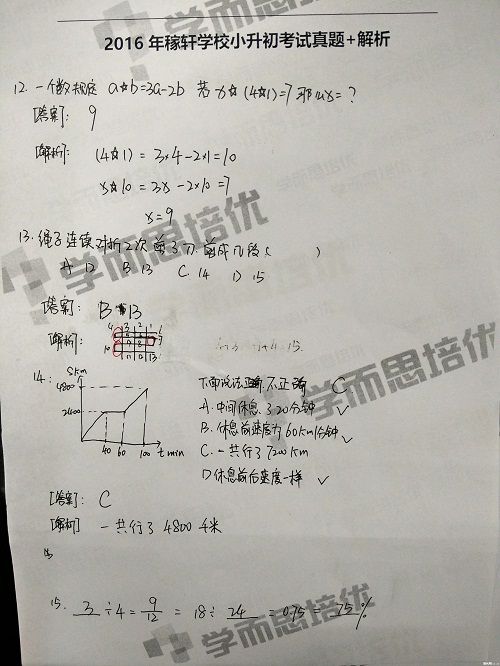 2016年稼轩学校小升初考试真题+解析
12. 一个数规定 a☆b=3a-2b 若 x☆(4☆1)=7 那么x=?
[答案]: 9
[解析]: (4☆1) = 3×4-2×1=10
x☆10 = 3x-2×10=7
x=9
13. 绳子连续对折2次 剪3刀 剪成几段( )
A 12 B 13 C. 14 D 15
[答案]: B 13
[解析]:
14.
skm
4800
2400
40 60 100 t min
下面说法不正确 C
A. 中间休息了20分钟 ✓
B. 休息前速度为60km/分钟 ✓
C. 一共行了7200km
D 休息前后速度一样 ✓
[答案]: C
[解析] 一共行了4800千米
15. 3÷4=9/12=18÷24=0.75=75%
学而思培优
学而思培优
学而思培优
学而思培优